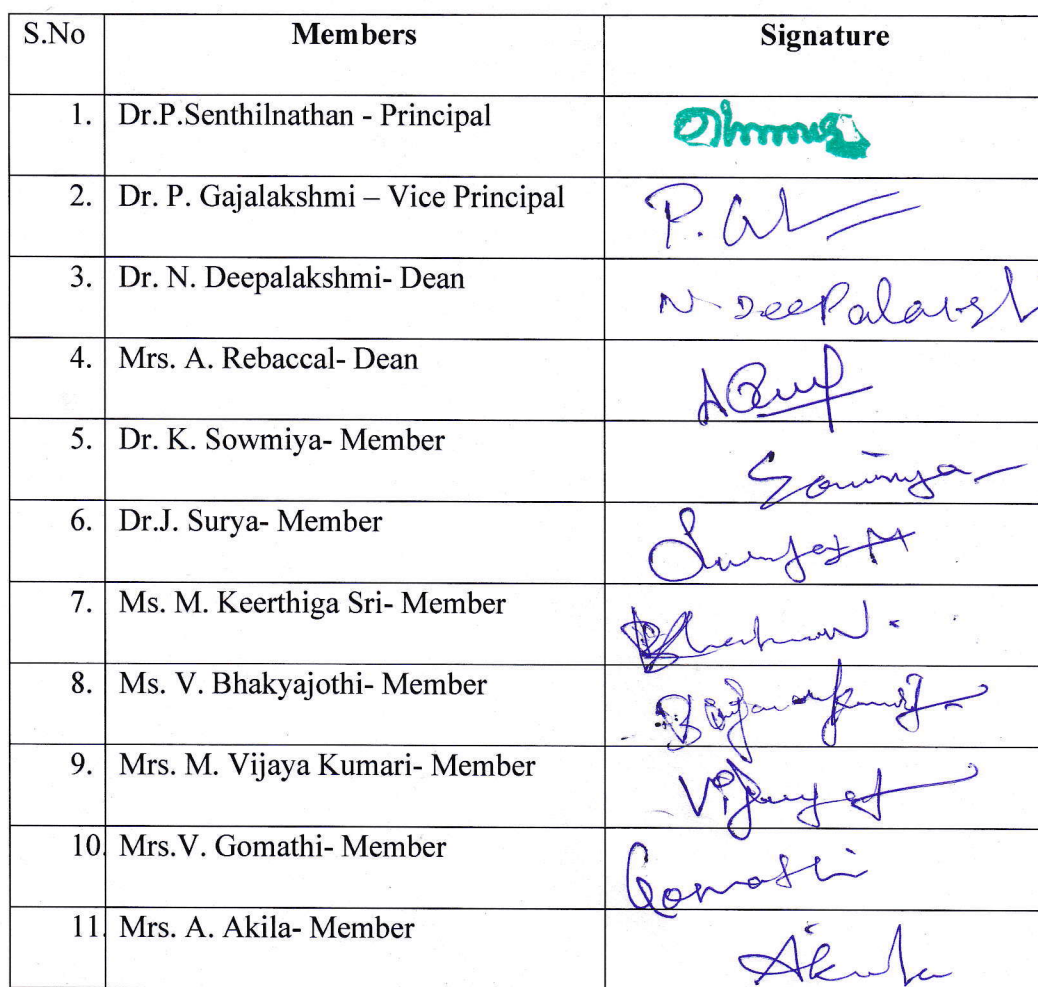 S.No Members Signature
1. Dr.P.Senthilnathan - Principal
2. Dr. P. Gajalakshmi – Vice Principal P.
3. Dr. N. Deepalakshmi- Dean N. Deepalaksh
4. Mrs. A. Rebaccal- Dean
5. Dr. K. Sowmiya- Member
6. Dr.J. Surya- Member
7. Ms. M. Keerthiga Sri- Member
8. Ms. V. Bhakyajothi- Member
9. Mrs. M. Vijaya Kumari- Member
10. Mrs.V. Gomathi- Member Gomathi
11. Mrs. A. Akila- Member Akila